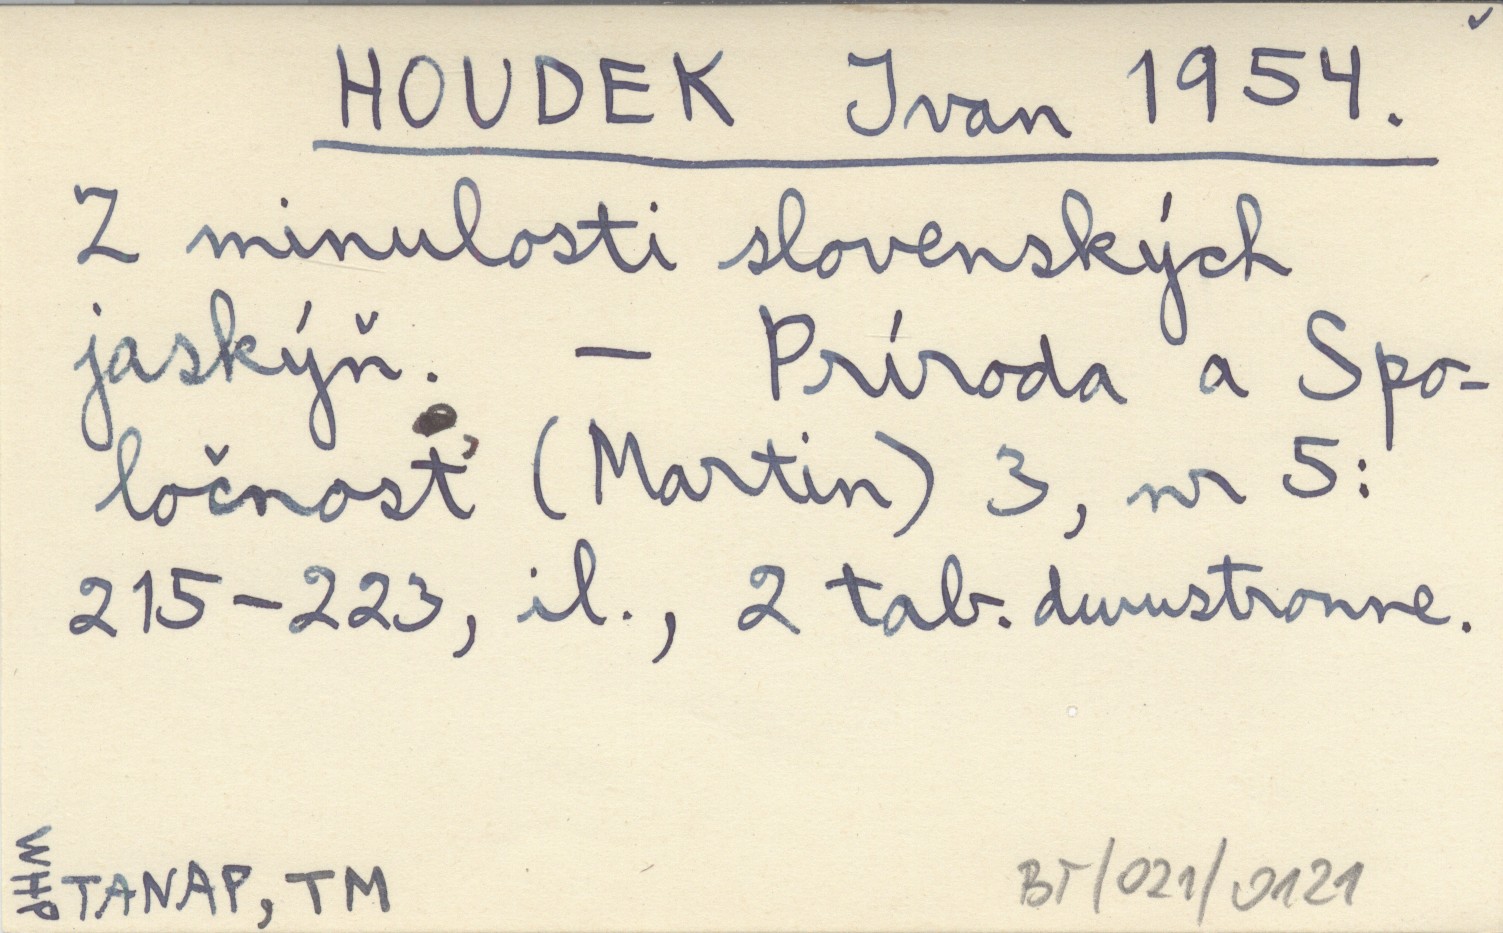 HOUDEK Ivan 1954.
Z minulosti slovenských
jaskýň. — Príroda a Spo-
ločnosť (Martin) 3, nr 5:
215-223, il., 2 tab. dwustronne.
WHP
TANAP, TM
BT/021/0121